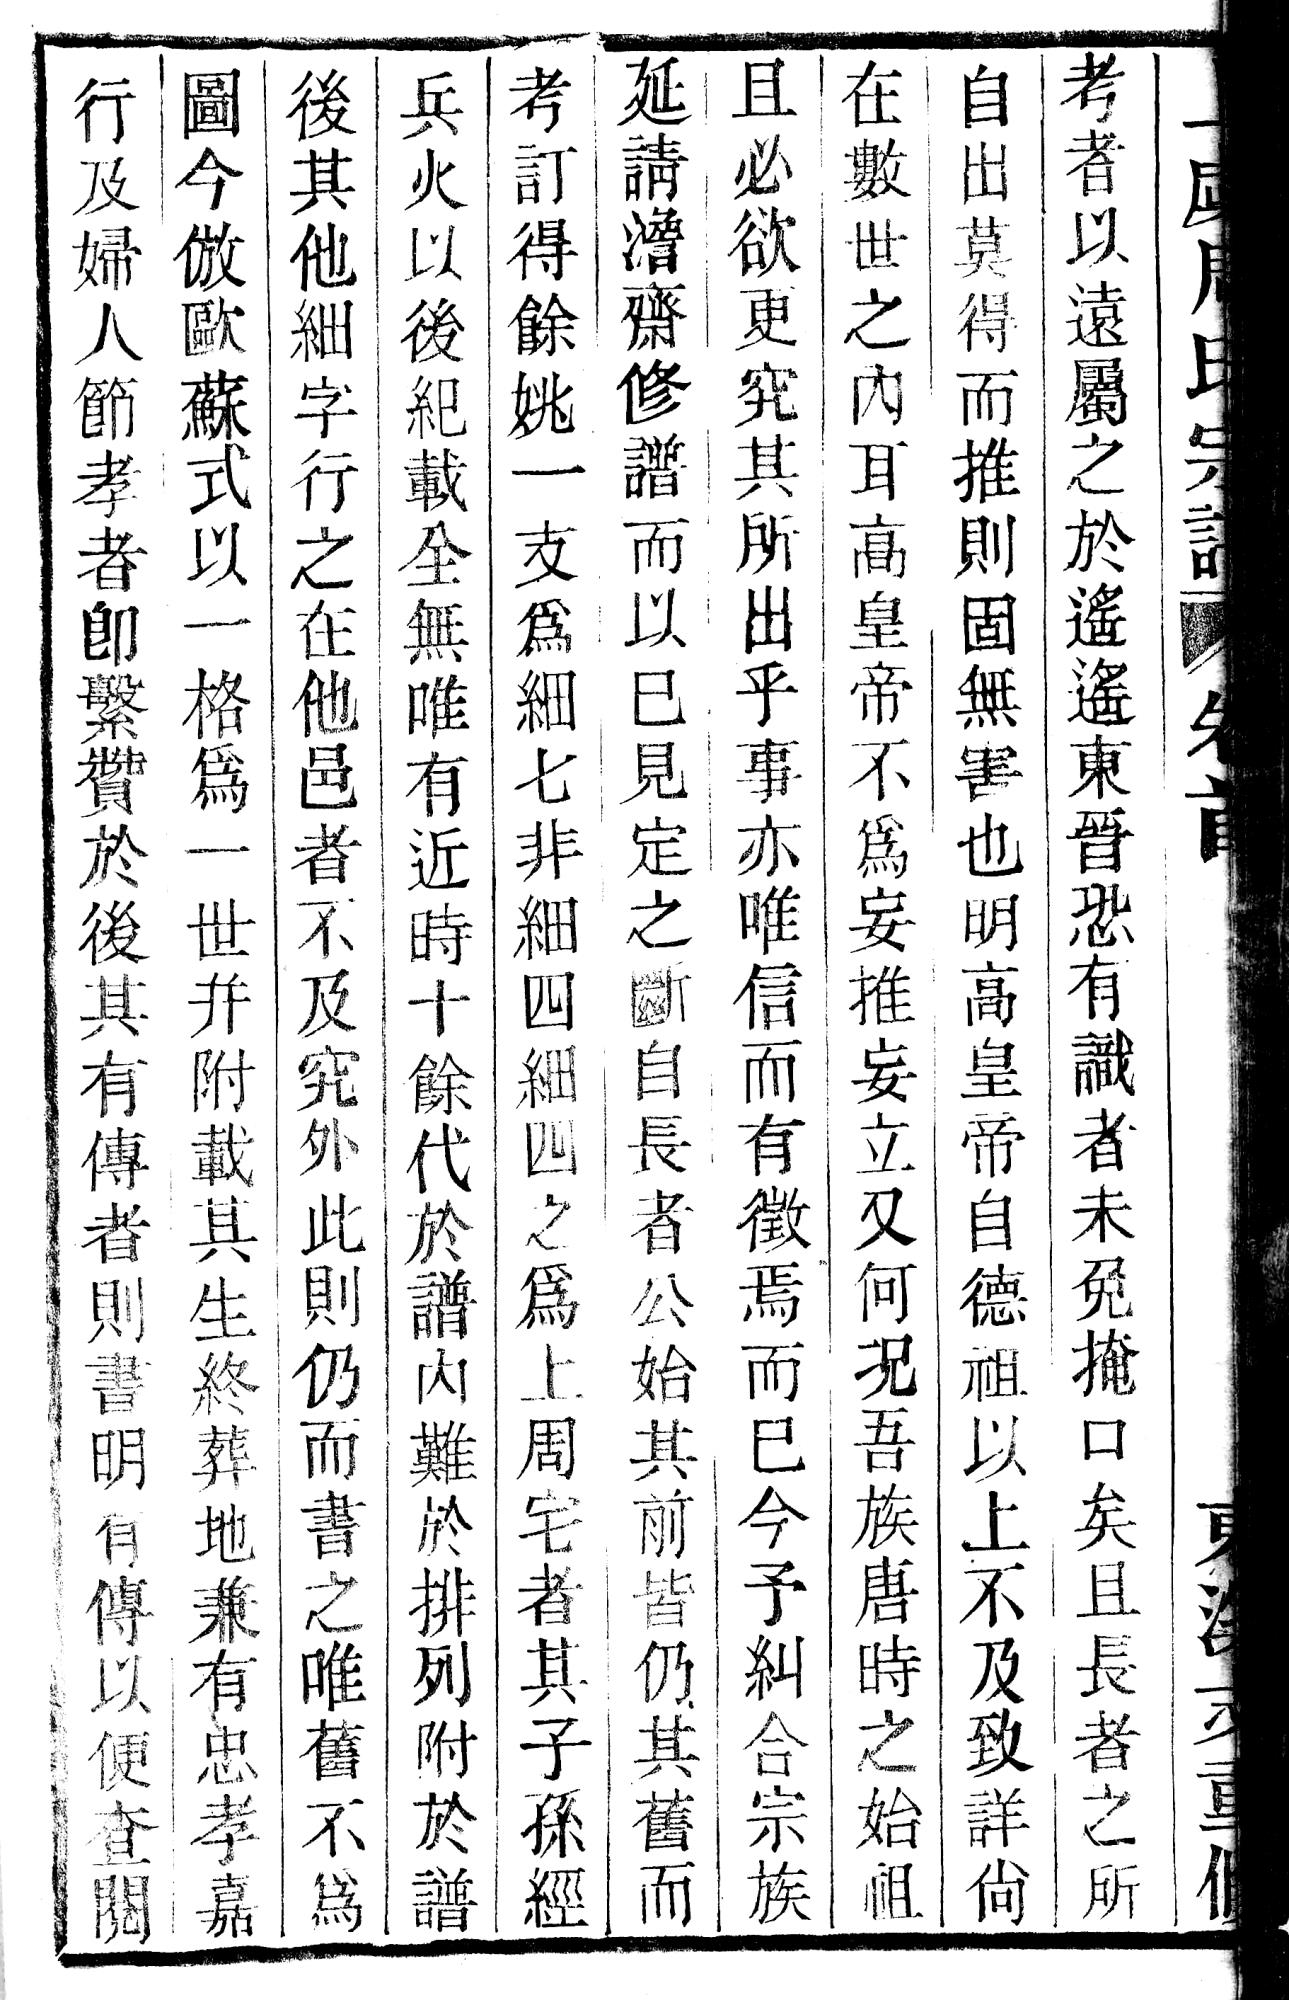 氏宗譜 卷首
考者以遠屬之於遙遙東晉恐有識者未免掩口矣且長者之所
自出莫得而推則固無害也明高皇帝自德祖以上不及致詳尙
在數世之內耳高皇帝不爲妄推妄立又何况吾族唐時之始祖
且必欲更究其所出乎事亦唯信而有徵焉而已今予糾合宗族
延請澹齋修譜而以已見定之斷自長者公始其前皆仍其舊而
考訂得餘姚一支爲細七非細四細四之爲上周宅者其子孫經
兵火以後紀載全無唯有近時十餘代於譜內難於排列附於譜
後其他細字行之在他邑者不及究外此則仍而書之唯舊不爲
圖今倣歐蘇式以一格爲一世幷附載其生終葬地兼有忠孝嘉
行及婦人節孝者卽繫贊於後其有傳者則書明有傳以便查閱